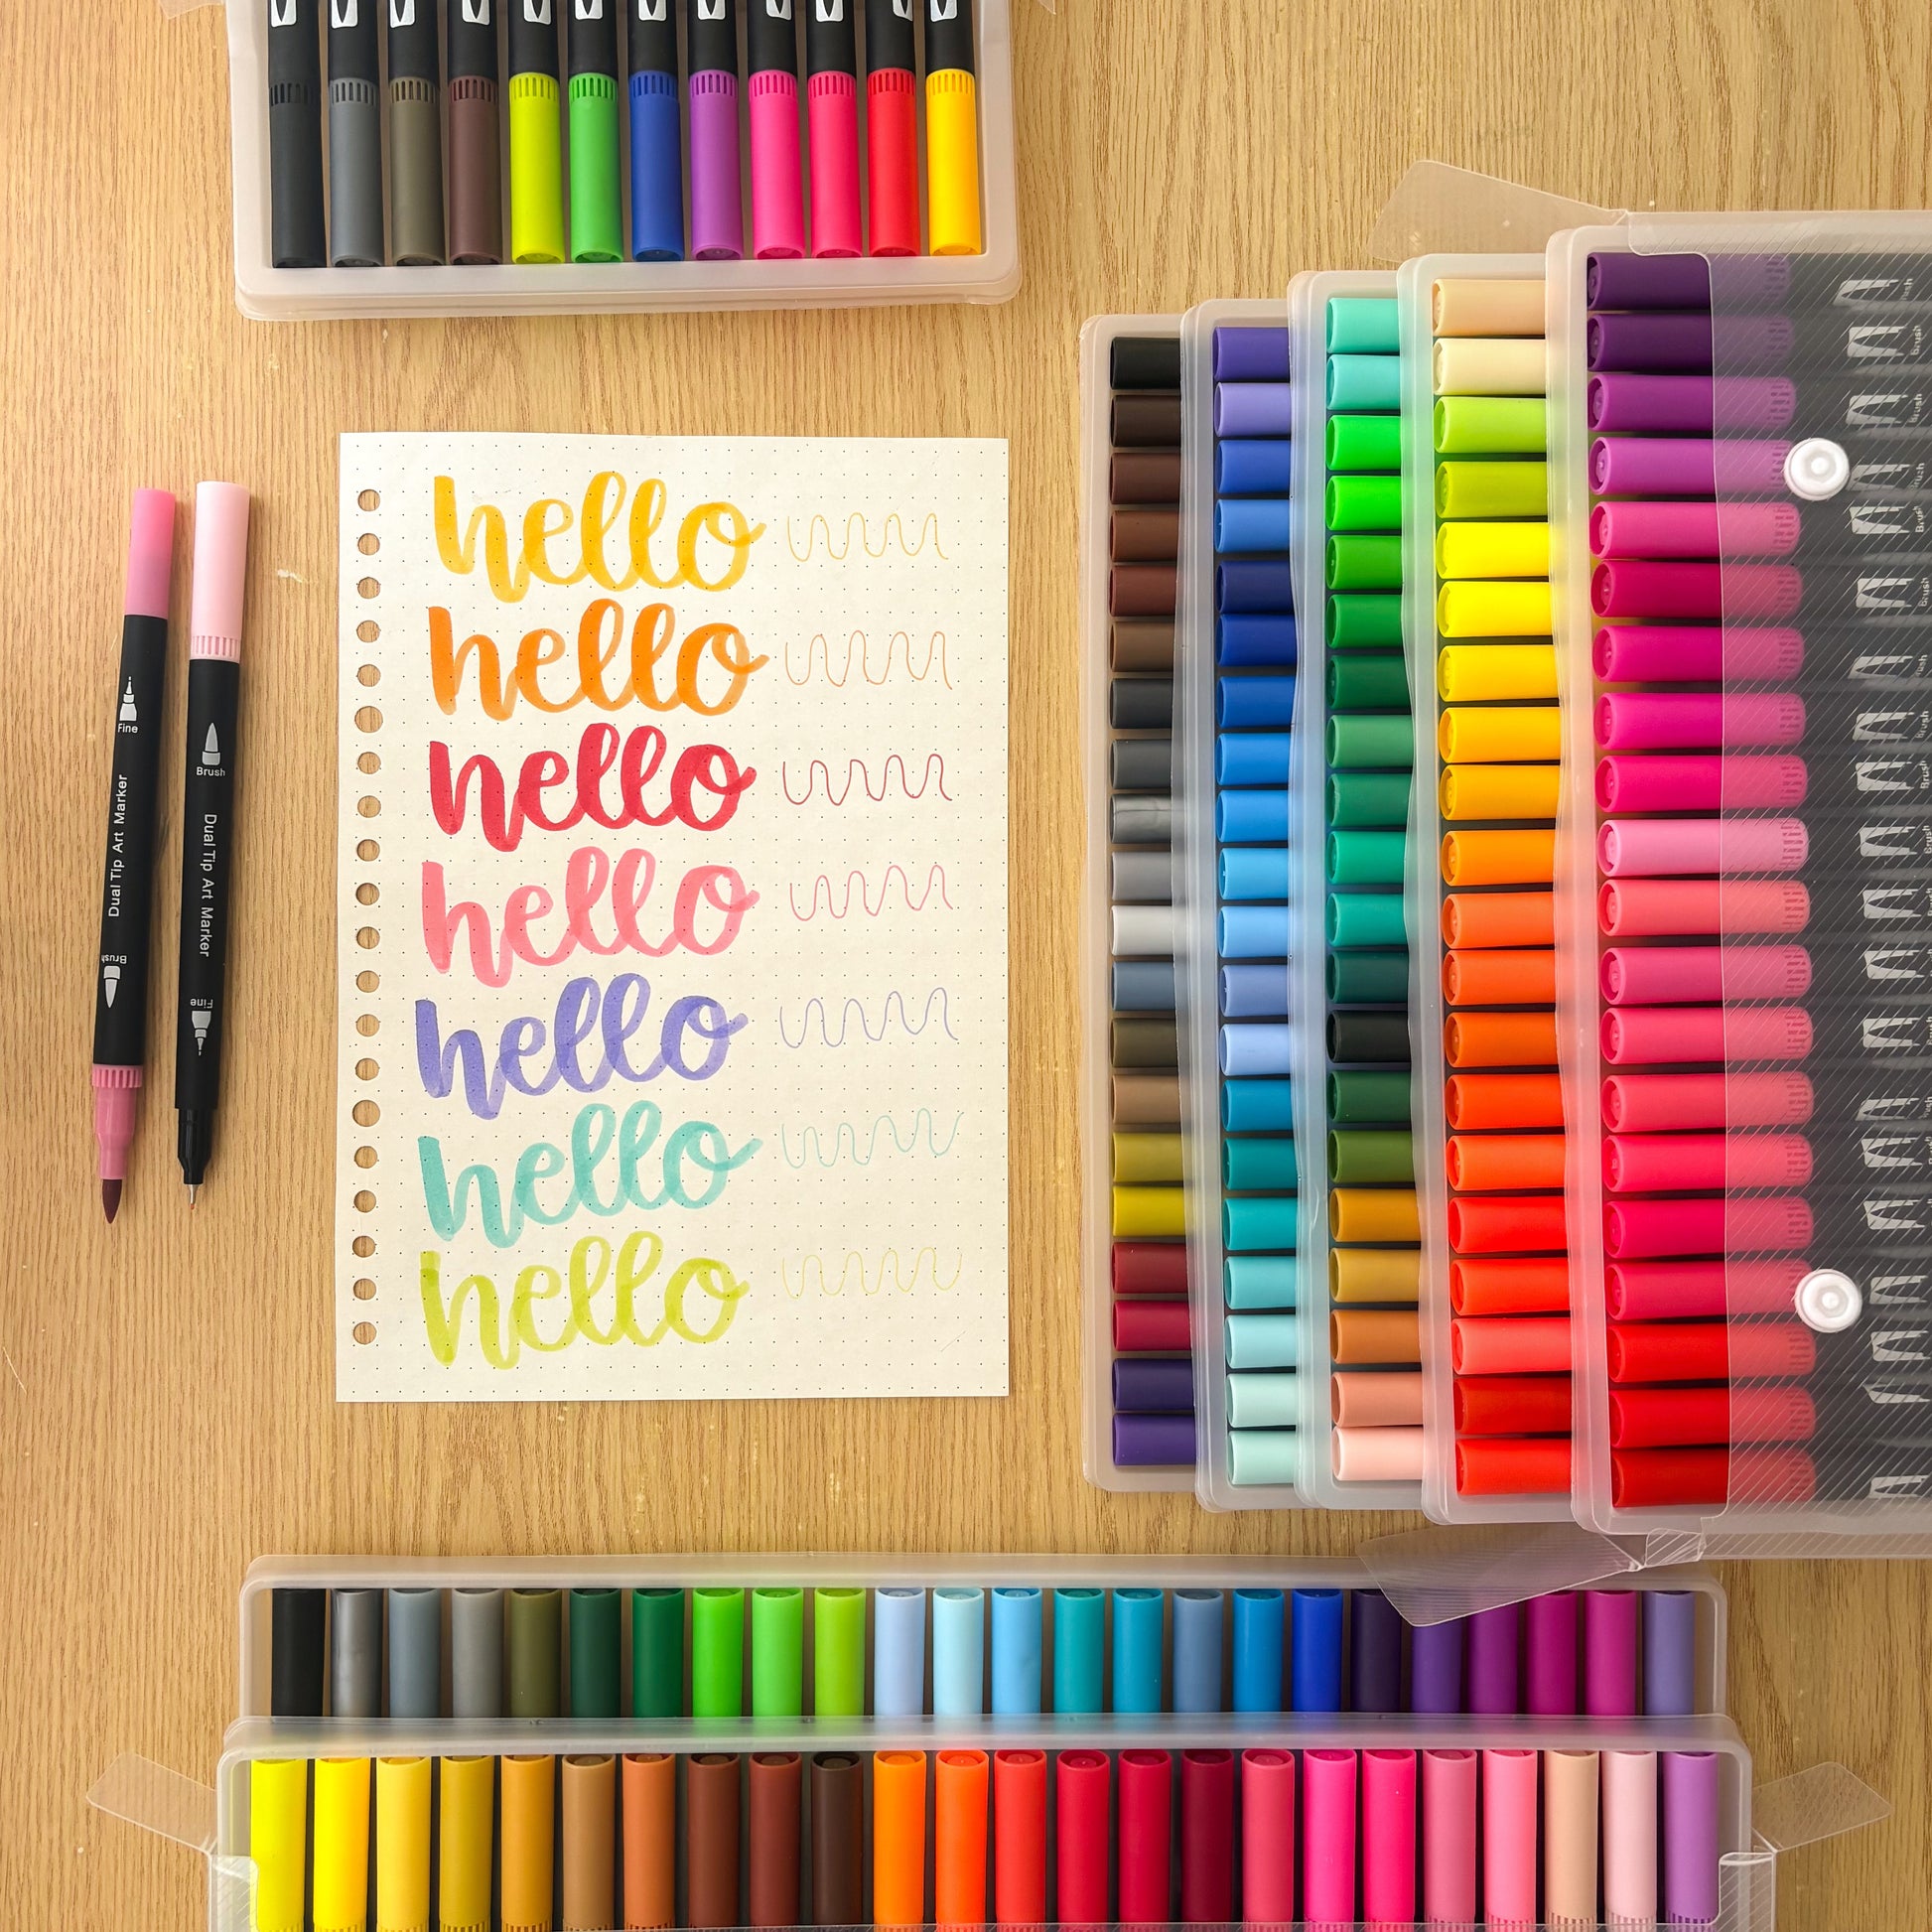 hello
hello
hello
hello
hello
hello
hello
Fine
Dual Tip Art Marker
Brush
Brush
Dual Tip Art Marker
Fine
Brush
Brush
Brush
Brush
Brush
Brush
Brush
Brush
Brush
Brush